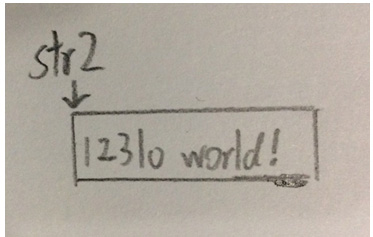 str2
123lo world!